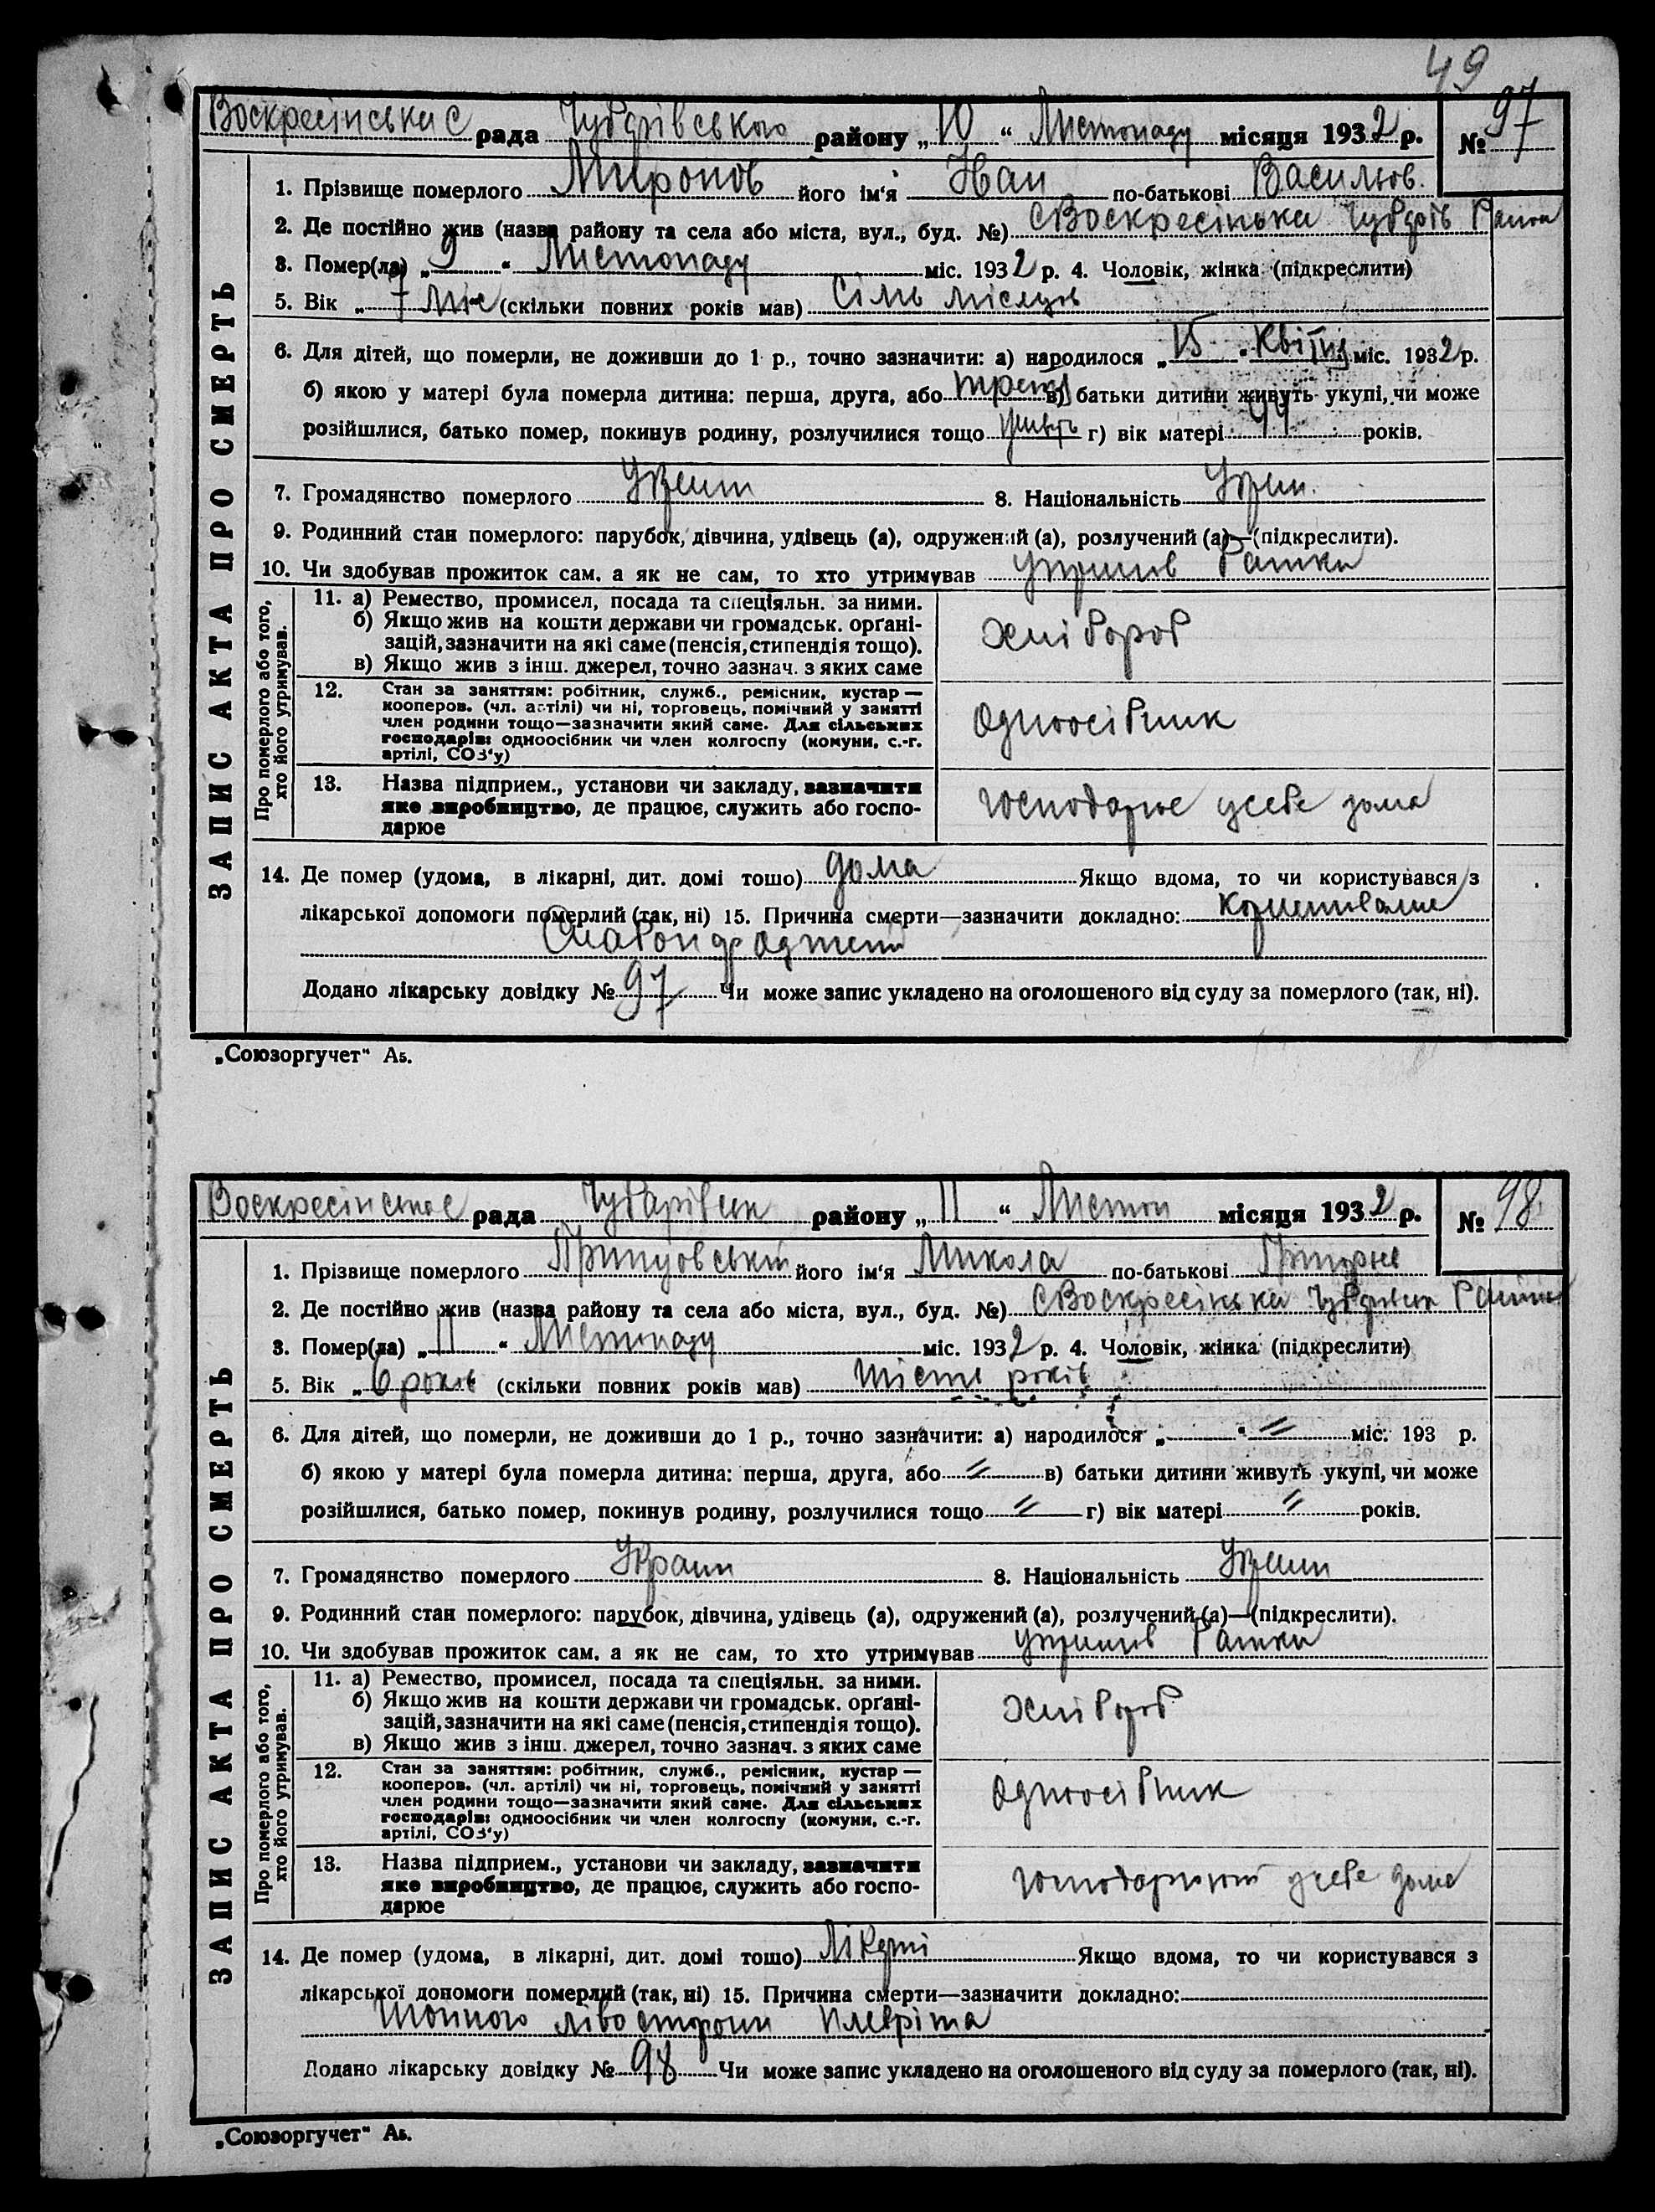 49
Воскресінська С рада Чубарівського району „10“ Листопаду місяця 1932 р. № 97
1. Прізвище померлого Миронов його ім'я Іван по-батькові Васильов.
2. Де постійно жив (назва району та села або міста, вул., буд. №) С Воскресінька Чубарів Район
3. Помер(ла) „9“ Листопаду міс. 1932 р. 4. Чоловік, жінка (підкреслити)
5. Вік „7 міс (скільки повних років мав) Сім місяців
6. Для дітей, що померли, не доживши до 1 р., точно зазначити: а) народилося „15“ Квітня міс. 1932 р.
б) якою у матері була померла дитина: перша, друга, або третя в) батьки дитини живуть укупі, чи може
розійшлися, батько помер, покинув родину, розлучилися тощо живуть г) вік матері 44 років.
7. Громадянство померлого Украин 8. Національність Украин.
9. Родинний стан померлого: парубок, дівчина, удівець (а), одружений (а), розлучений (а)—(підкреслити).
10. Чи здобував прожиток сам, а як не сам, то хто утримував Утримув Батьки
Про померлого або того, хто його утримував.
11. а) Ремество, промисел, посада та спеціяльн. за ними.
б) Якщо жив на кошти держави чи громадськ. орґані-
зацій, зазначити на які саме (пенсія, стипендія тощо).
в) Якщо жив з інш. джерел, точно зазнач. з яких саме
хлібороб
12. Стан за заняттям: робітник, служб., ремісник, кустар—
кооперов. (чл. артілі) чи ні, торговець, помічний у занятті
член родини тощо—зазначити який саме. Для сільських
господарів: одноосібник чи член колгоспу (комуни, с.-г.
артілі, СОЗ'у)
одноосібник
13. Назва підприєм., установи чи закладу, зазначити
яке виробництво, де працює, служить або госпо-
дарює
господарює усебе дома
14. Де помер (удома, в лікарні, дит. домі тощо) дома Якщо вдома, то чи користувався з
лікарської допомоги померлий (так, ні) 15. Причина смерти—зазначити докладно: Користвався
Додано лікарську довідку № 97 Чи може запис укладено на оголошеного від суду за померлого (так, ні).
ЗАПИС АКТА ПРО СМЕРТЬ
„Союзоргучет“ А5.
Воскресінської рада Чубарівськ району „11“ Листоп місяця 1932 р. № 98
1. Прізвище померлого його ім'я Микола по-батькові Григоров
2. Де постійно жив (назва району та села або міста, вул., буд. №) С Воскресінька Чубарівськ Район
3. Помер(ла) „11“ Листопаду міс. 1932 р. 4. Чоловік, жінка (підкреслити)
5. Вік „6 років“ (скільки повних років мав) Шість років
6. Для дітей, що померли, не доживши до 1 р., точно зазначити: а) народилося „ “ 〃 міс. 193 р.
б) якою у матері була померла дитина: перша, друга, або 〃 в) батьки дитини живуть укупі, чи може
розійшлися, батько помер, покинув родину, розлучилися тощо 〃 г) вік матері 〃 років.
7. Громадянство померлого Украин 8. Національність Украин
9. Родинний стан померлого: парубок, дівчина, удівець (а), одружений (а), розлучений (а)—(підкреслити).
10. Чи здобував прожиток сам, а як не сам, то хто утримував утримув Батьки
Про померлого або того, хто його утримував.
11. а) Ремество, промисел, посада та спеціяльн. за ними.
б) Якщо жив на кошти держави чи громадськ. орґані-
зацій, зазначити на які саме (пенсія, стипендія тощо).
в) Якщо жив з інш. джерел, точно зазнач. з яких саме
хлібороб
12. Стан за заняттям: робітник, служб., ремісник, кустар—
кооперов. (чл. артілі) чи ні, торговець, помічний у занятті
член родини тощо—зазначити який саме. Для сільських
господарів: одноосібник чи член колгоспу (комуни, с.-г.
артілі, СОЗ'у)
одноосібник
13. Назва підприєм., установи чи закладу, зазначити
яке виробництво, де працює, служить або госпо-
дарює
господарюют усебе дома
14. Де помер (удома, в лікарні, дит. домі тощо) Лікарні Якщо вдома, то чи користувався з
лікарської допомоги померлий (так, ні) 15. Причина смерти—зазначити докладно:
лівосторонн плевріта
Додано лікарську довідку № 98 Чи може запис укладено на оголошеного від суду за померлого (так, ні).
ЗАПИС АКТА ПРО СМЕРТЬ
„Союзоргучет“ А5.